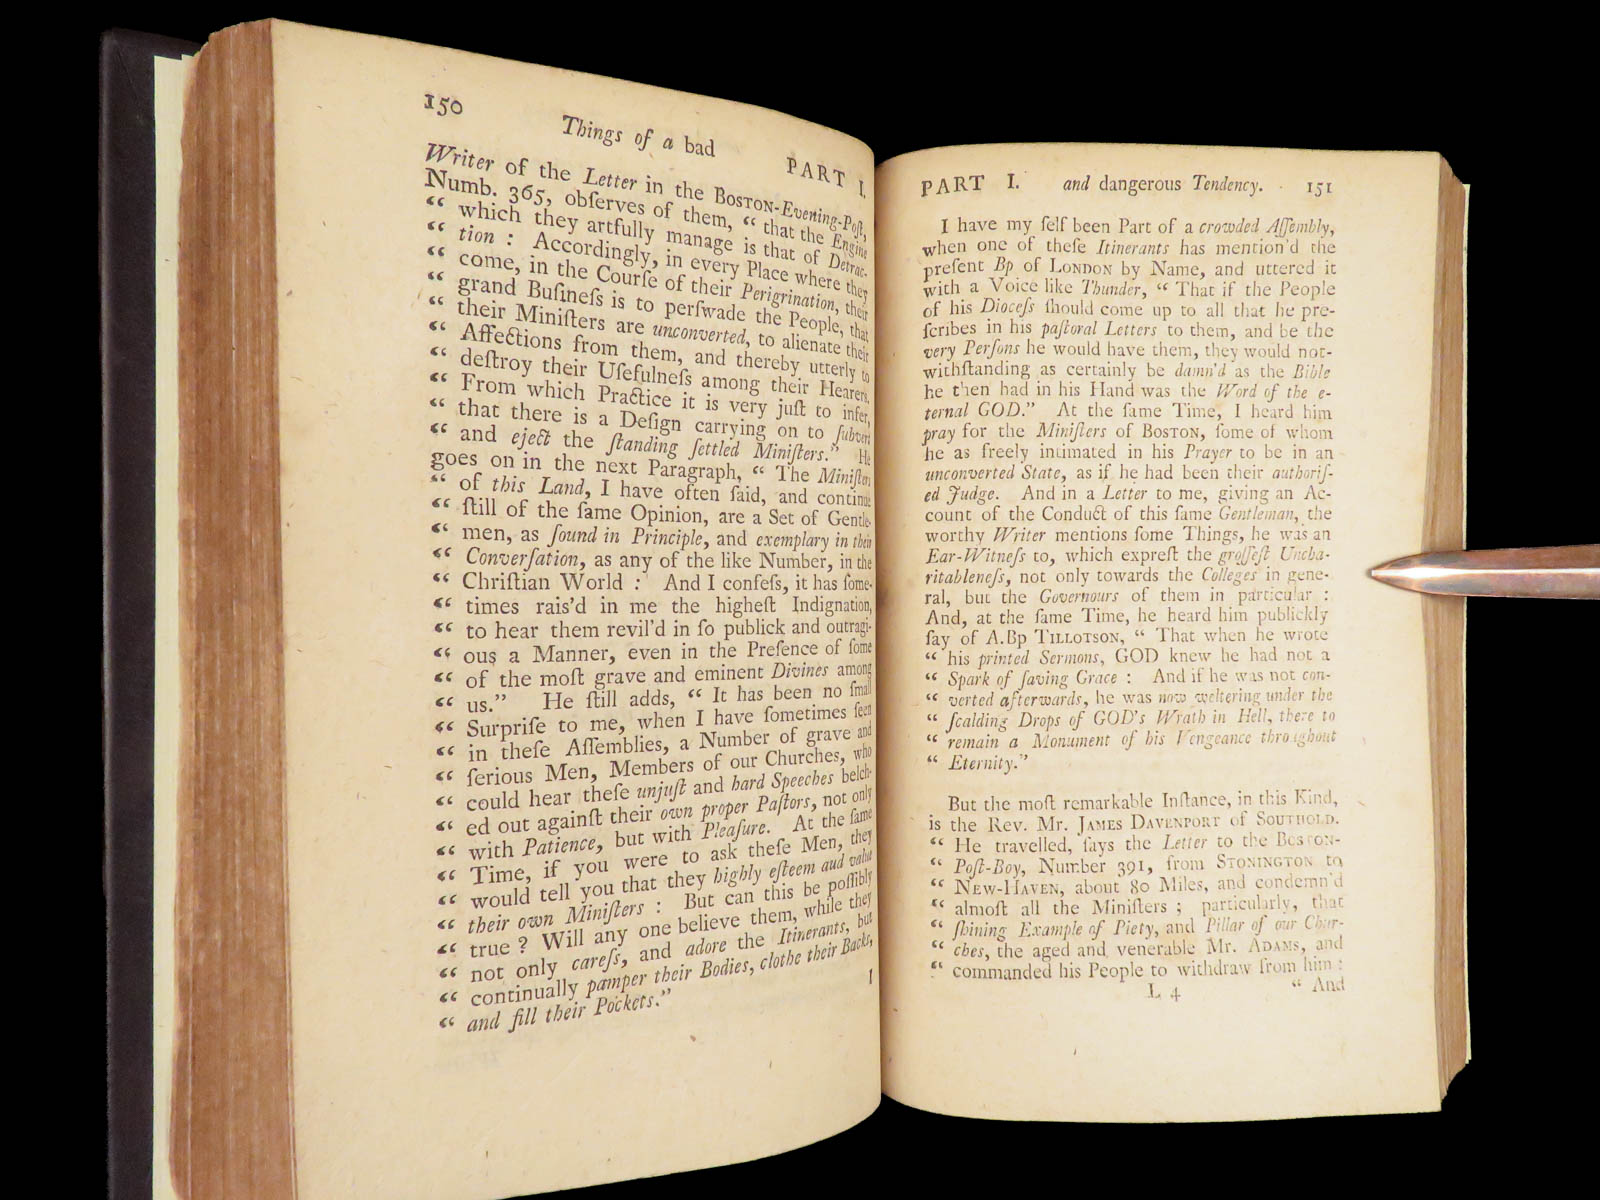 150
Things of a bad
PART I.
Writer of the Letter in the BOSTON-Evening-Poſt,
Numb. 365, obſerves of them, “ that the Engine
“ which they artfully manage is that of Detrac-
“ tion : Accordingly, in every Place where they
“ come, in the Courſe of their Perigrination, their
“ grand Buſineſs is to perſwade the People, that
“ their Miniſters are unconverted, to alienate their
“ Affections from them, and thereby utterly to
“ deſtroy their Uſefulneſs among their Hearers.
“ From which Practice it is very juſt to infer,
“ that there is a Deſign carrying on to ſubvert
“ and eject the ſtanding ſettled Miniſters.” He
goes on in the next Paragraph, “ The Miniſters
“ of this Land, I have often ſaid, and continue
“ ſtill of the ſame Opinion, are a Set of Gentle-
“ men, as ſound in Principle, and exemplary in their
“ Converſation, as any of the like Number, in the
“ Chriſtian World : And I confeſs, it has ſome-
“ times rais’d in me the higheſt Indignation,
“ to hear them revil’d in ſo publick and outragi-
“ ous a Manner, even in the Preſence of ſome
“ of the moſt grave and eminent Divines among
“ us.” He ſtill adds, “ It has been no ſmall
“ Surpriſe to me, when I have ſometimes ſeen
“ in theſe Aſſemblies, a Number of grave and
“ ſerious Men, Members of our Churches, who
“ could hear theſe unjuſt and hard Speeches belch-
“ ed out againſt their own proper Paſtors, not only
“ with Patience, but with Pleaſure. At the ſame
“ Time, if you were to ask theſe Men, they
“ would tell you that they highly eſteem aud value
“ their own Miniſters : But can this be poſſibly
“ true ? Will any one believe them, while they
“ not only careſs, and adore the Itinerants, but
“ continually pamper their Bodies, clothe their Backs,
“ and fill their Pockets.”
I
PART I. and dangerous Tendency. 151
I have my ſelf been Part of a crowded Aſſembly,
when one of theſe Itinerants has mention’d the
preſent Bp of LONDON by Name, and uttered it
with a Voice like Thunder, “ That if the People
of his Dioceſs ſhould come up to all that he pre-
ſcribes in his paſtoral Letters to them, and be the
very Perſons he would have them, they would not-
withſtanding as certainly be damn’d as the Bible
he then had in his Hand was the Word of the e-
ternal GOD.” At the ſame Time, I heard him
pray for the Miniſters of BOSTON, ſome of whom
he as freely intimated in his Prayer to be in an
unconverted State, as if he had been their authoriſ-
ed Judge. And in a Letter to me, giving an Ac-
count of the Conduct of this ſame Gentleman, the
worthy Writer mentions ſome Things, he was an
Ear-Witneſs to, which expreſt the groſſeſt Uncha-
ritableneſs, not only towards the Colleges in gene-
ral, but the Governours of them in particular :
And, at the ſame Time, he heard him publickly
ſay of A.Bp TILLOTSON, “ That when he wrote
“ his printed Sermons, GOD knew he had not a
“ Spark of ſaving Grace : And if he was not con-
“ verted afterwards, he was now weltering under the
“ ſcalding Drops of GOD’s Wrath in Hell, there to
“ remain a Monument of his Vengeance throughout
“ Eternity.”
But the moſt remarkable Inſtance, in this Kind,
is the Rev. Mr. JAMES DAVENPORT of SOUTHOLD.
“ He travelled, ſays the Letter to the BOSTON-
“ Poſt-Boy, Number 391, from STONINGTON to
“ NEW-HAVEN, about 80 Miles, and condemn’d
“ almoſt all the Miniſters ; particularly, that
“ ſhining Example of Piety, and Pillar of our Chur-
“ ches, the aged and venerable Mr. ADAMS, and
“ commanded his People to withdraw from him :
L 4 “ And